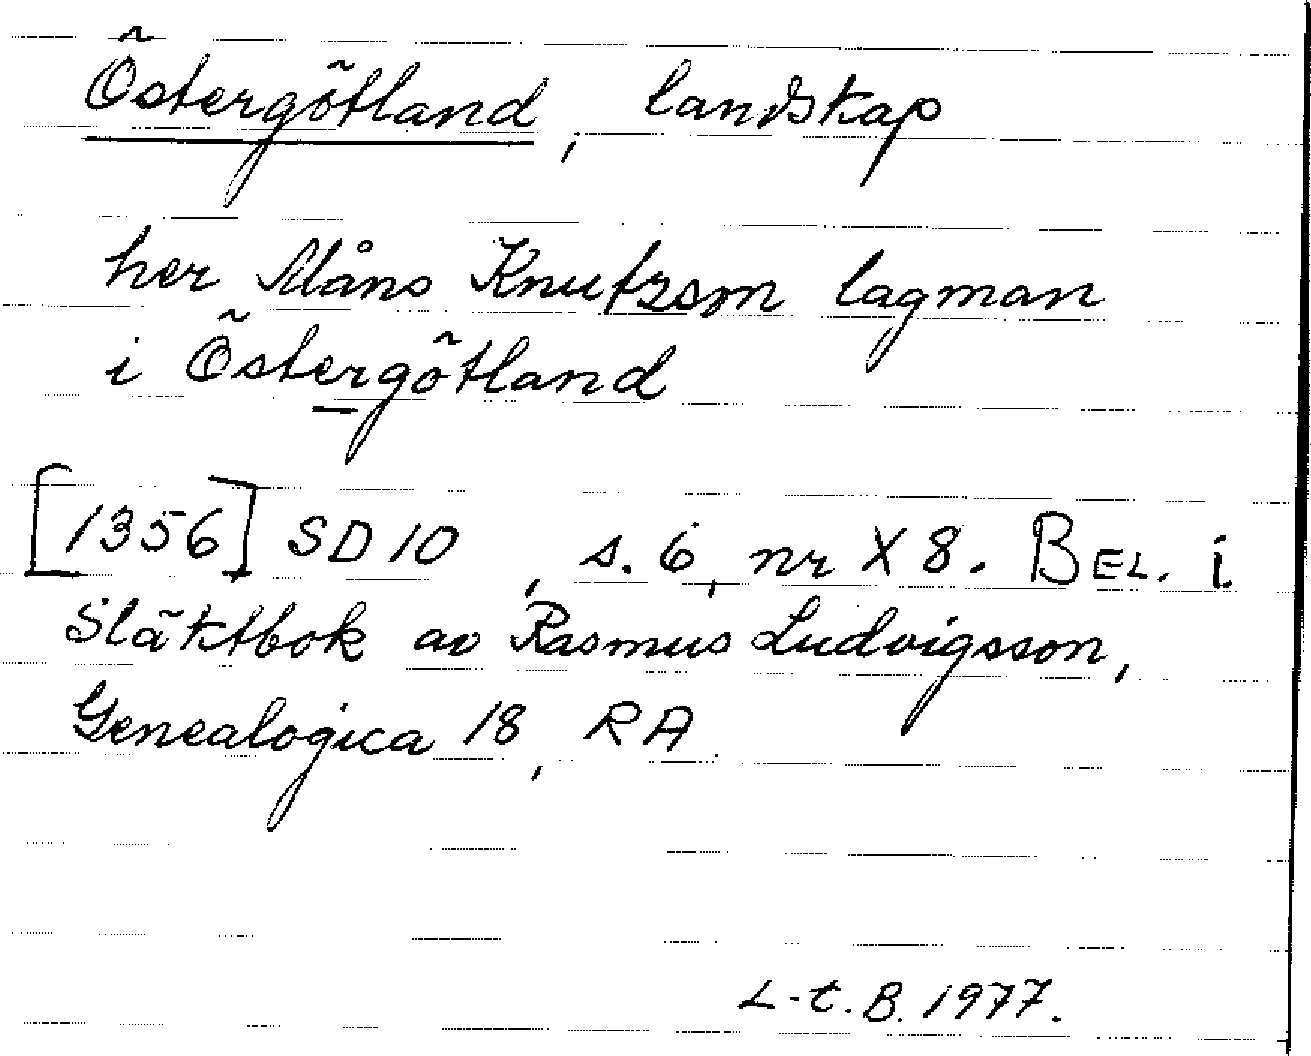 Östergötland, landskap
her Måns Knutzson lagman
i Östergötland
[1356] SD 10, s. 6, nr X 8. BEL. i
Släktbok av Rasmus Ludvigsson,
Genealogica 18, RA
L-t. B. 1977.